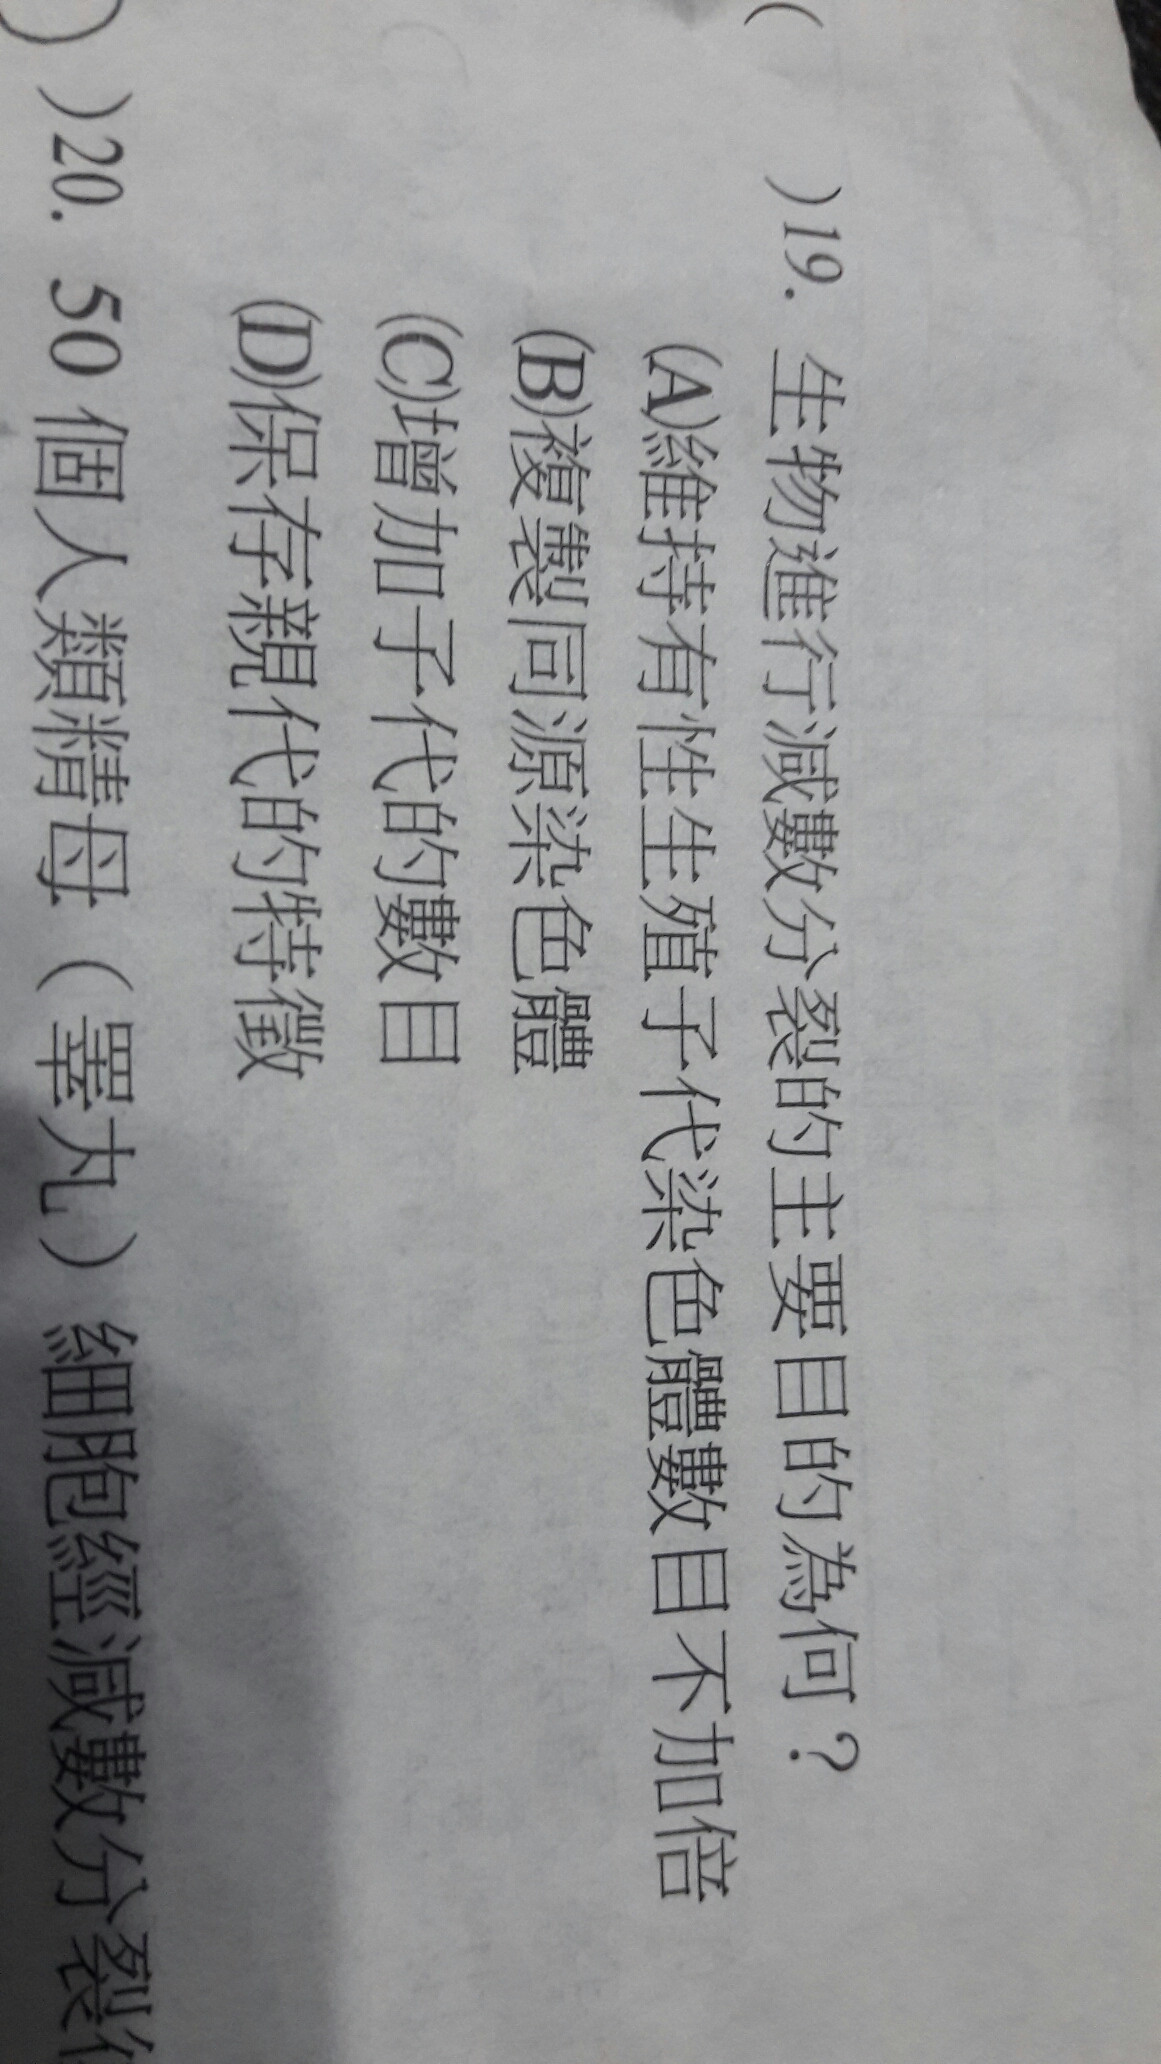 ( )19. 生物進行減數分裂的主要目的為何？
(A)維持有性生殖子代染色體數目不加倍
(B)複製同源染色體
(C)增加子代的數目
(D)保存親代的特徵
)20. 50 個人類精母（睪丸）細胞經減數分裂